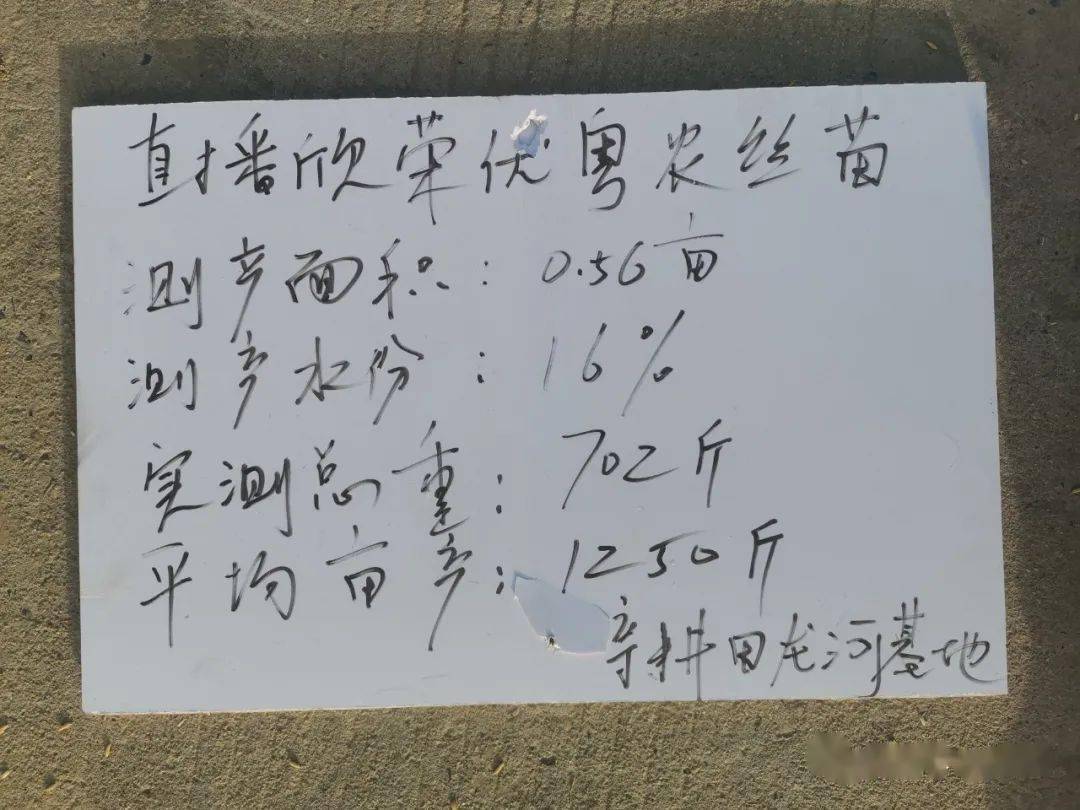 直播欣荣优粤农丝苗
测产面积：0.56亩
测产水份：16%
实测总重：702斤
平均亩产：1250斤
亲耕田龙河基地